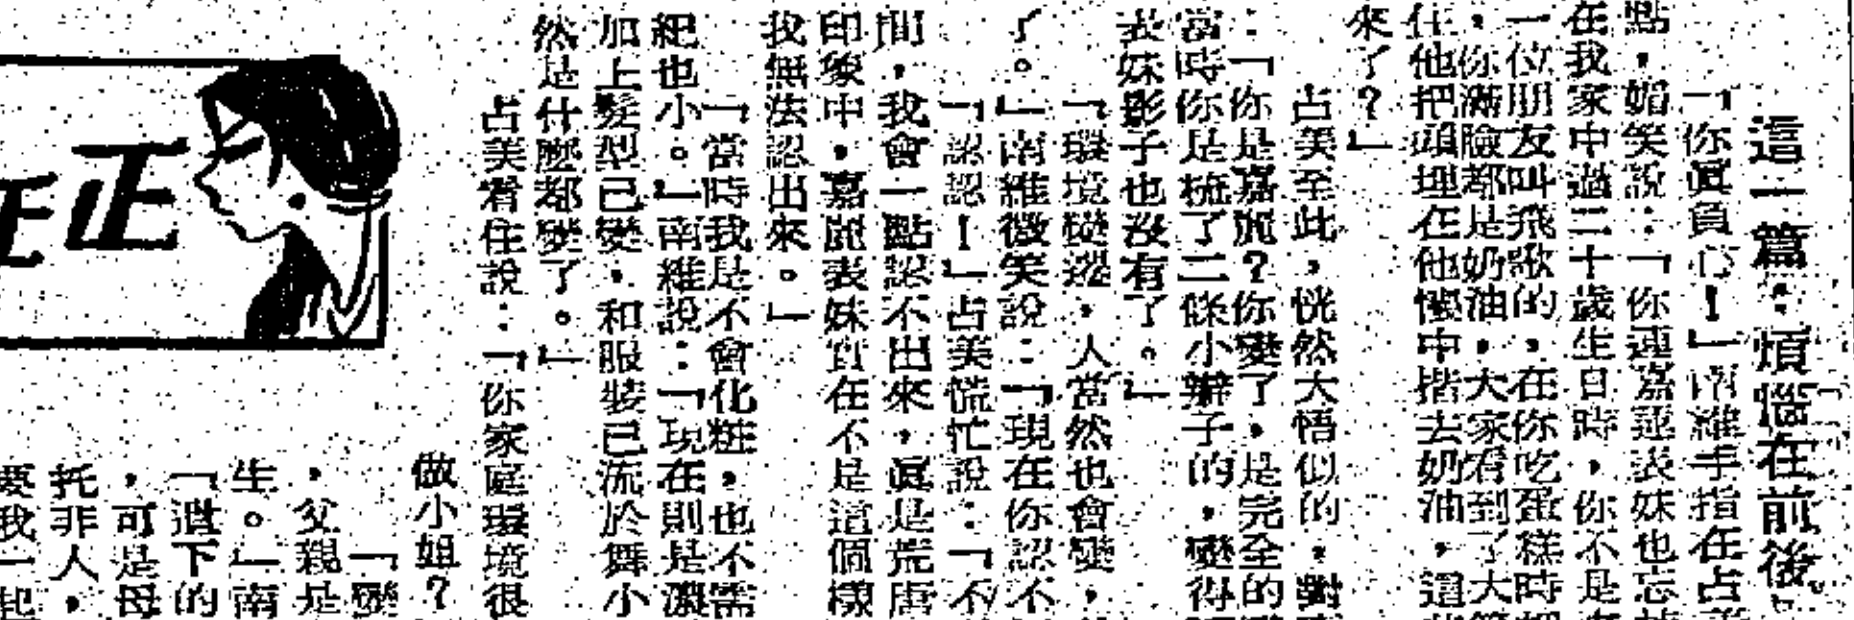 這一篇：煩惱在前後
「你眞負心！」南維手指在占
點，媚笑說：「你連嘉麗表妹也忘
在我家中過二十歲生日時，你不是
一位朋友叫飛歌的，在你吃蛋糕時
，你滿臉都是奶油，大家看到了大
住他把頭埋在他懷中揩去奶油，這
來了？」
占美至此，恍然大悟似的，對
：「你是嘉麗？你變了，是完全的
當時你是梳了二條小辮子的，變得
表妹影子也沒有了。」
「環境變遷，人當然也會變，
了。」南維微笑說：「現在你認不
「認認！」占美慌忙說：「不
間，我會一點認不出來，眞是荒唐
印象中，嘉麗表妹實在不是這個樣
我無法認出來。」
「當時我是不會化粧，也不需
紀也小。」南維說：「現在則是濃
加上髮型已變，和服裝已流於舞小
然是什麼都變了。」
占美看住說：「你家庭環境很
做小姐？
「變
，父親是
生。」南
「遺下的
，可是母
托非人，
要我一起
正